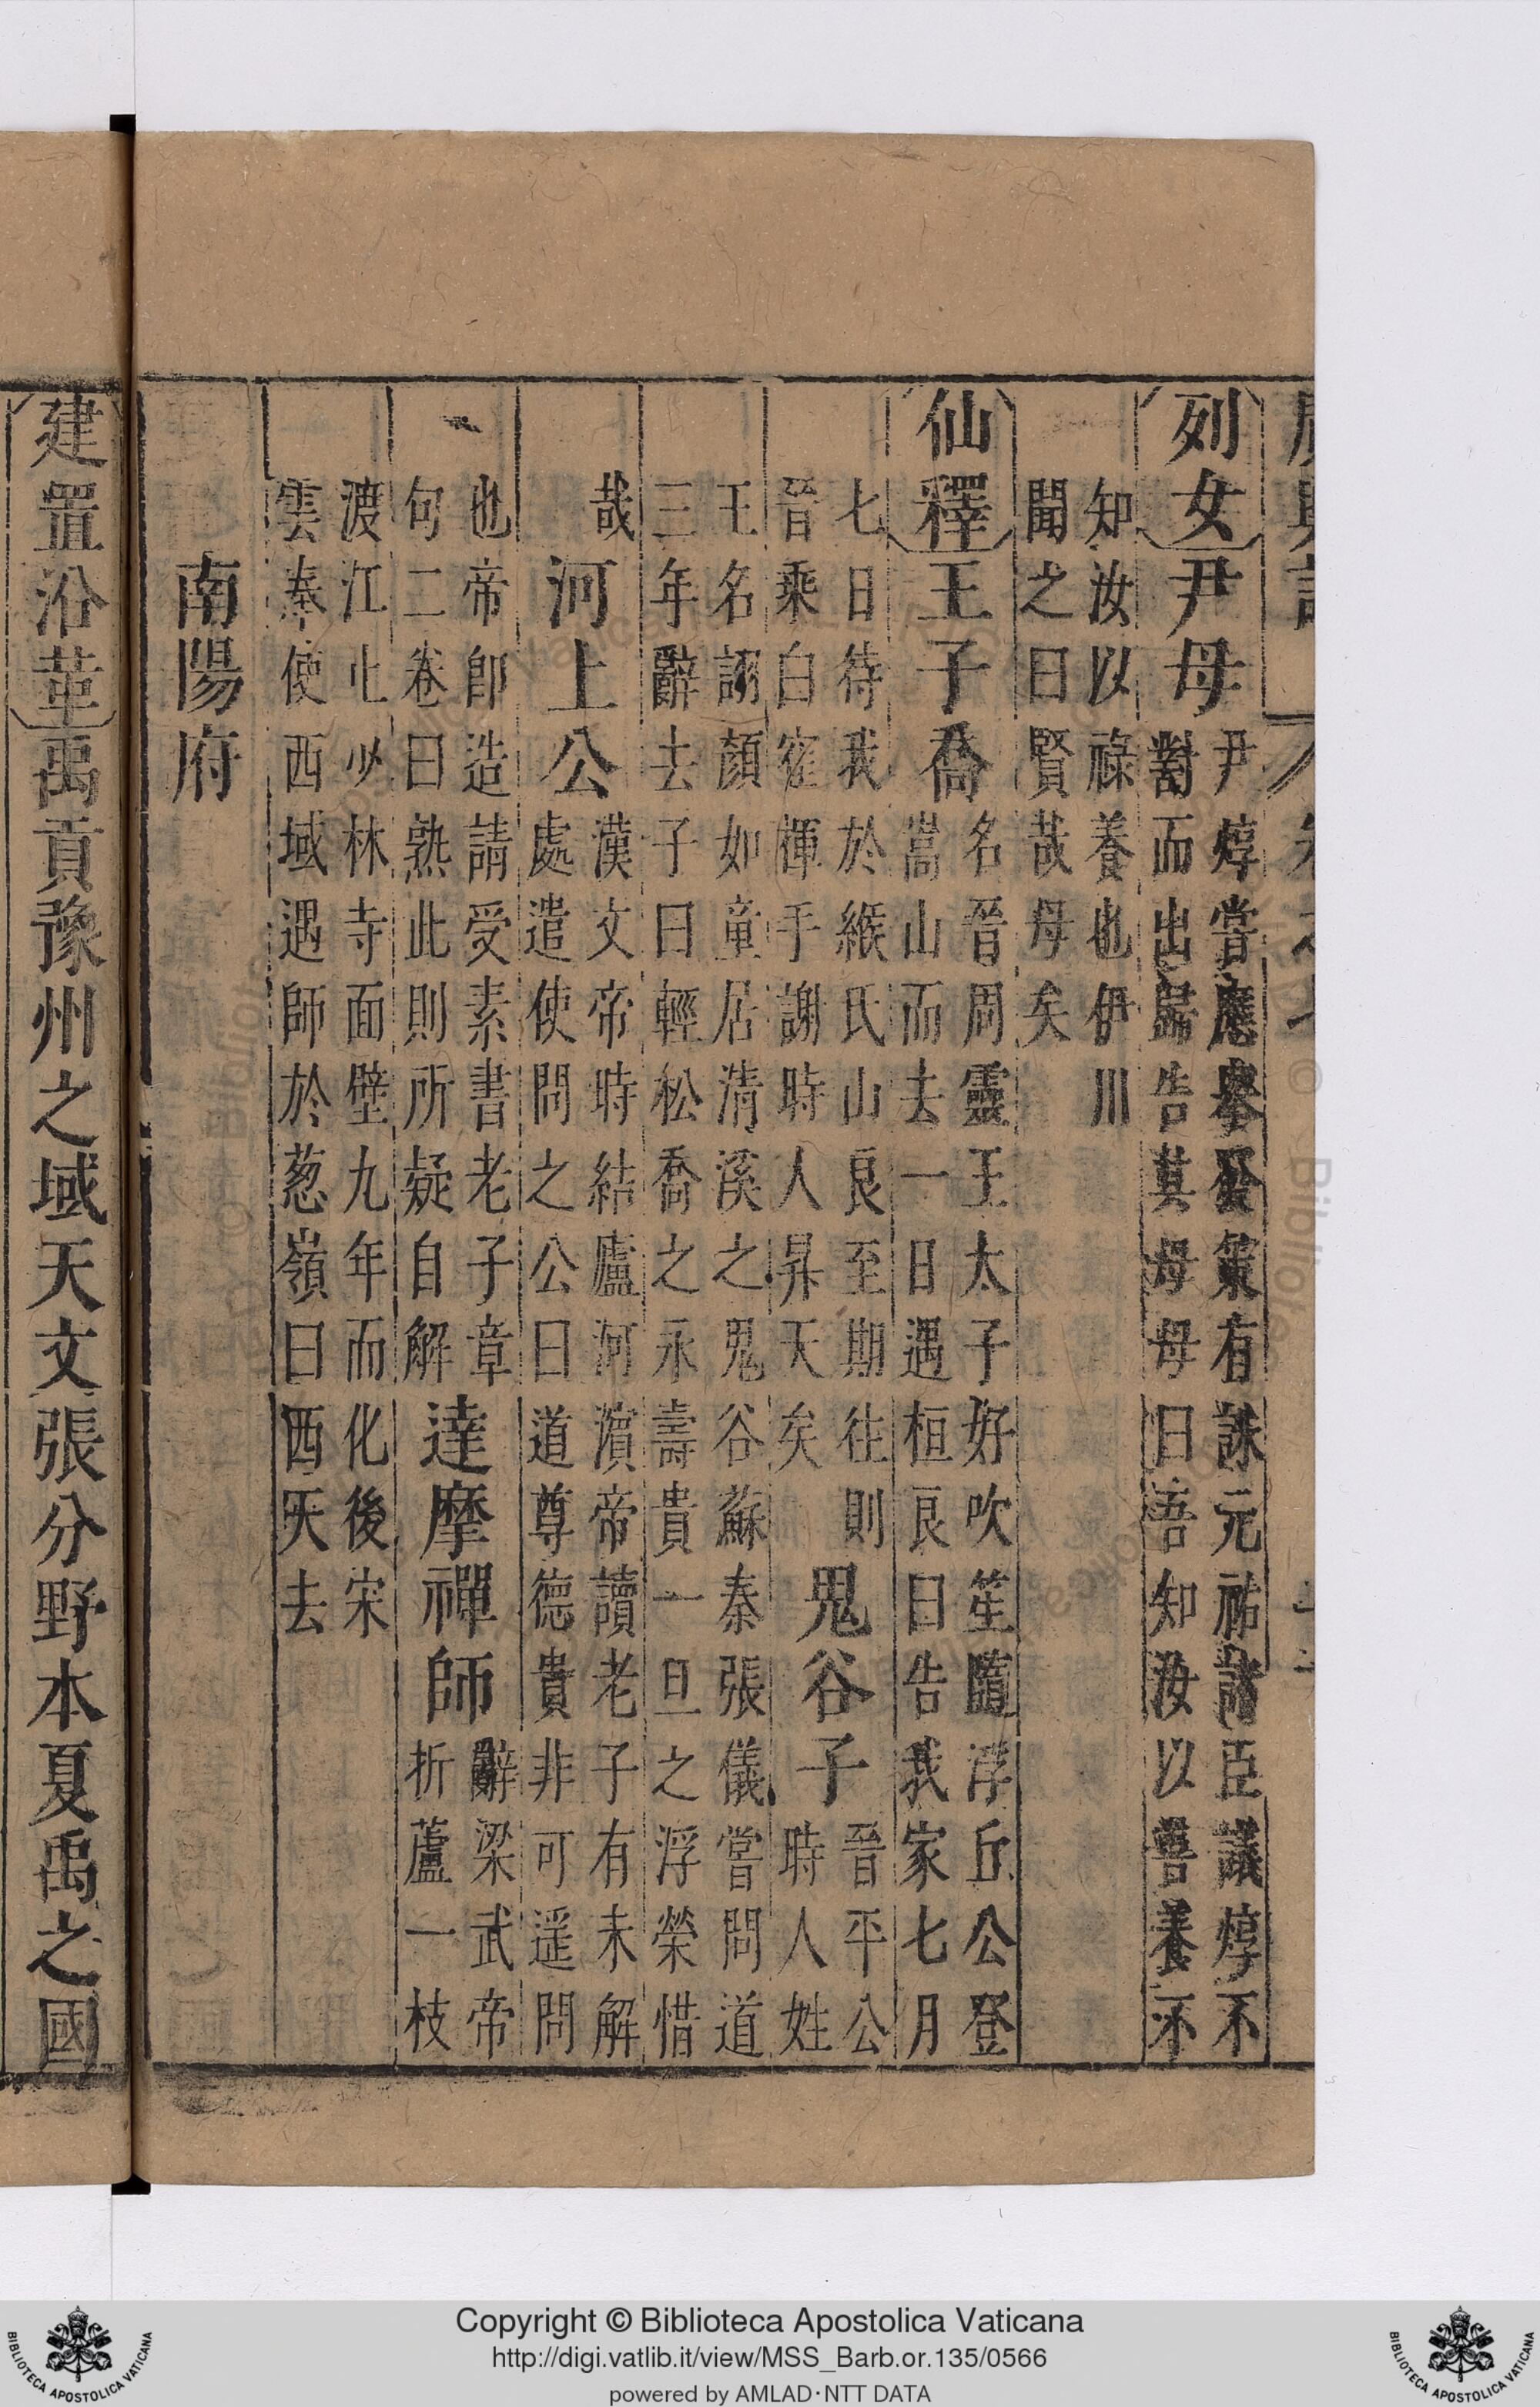 列女尹母
尹焞嘗應舉發策有誅元祐諸臣議焞不
對而出歸告其母母曰吾知汝以善養不
知汝以祿養也伊川
聞之曰賢哉母矣
仙釋王子喬
名晉周靈王太子好吹笙隨浮丘公登
嵩山而去一日遇桓良曰告我家七月
七日待我於緱氏山良至期往則
晉乘白隺揮手謝時人昇天矣
鬼谷子
晉平公
時人姓
王名詡顏如童居清溪之鬼谷蘇秦張儀嘗問道
三年辭去子曰輕松喬之永壽貴一旦之浮榮惜
哉
河上公
漢文帝時結廬河濵帝讀老子有未解
處遣使問之公曰道尊德貴非可遥問
也帝卽造請受素書老子章
句二卷曰熟此則所疑自解
達摩禪師
辭梁武帝
折蘆一枝
渡江止少林寺面壁九年而化後宋
雲奉使西域遇師於葱嶺曰西天去
南陽府
建置沿革禹貢豫州之域天文張分野本夏禹之國
Copyright © Biblioteca Apostolica Vaticana
http://digi.vatlib.it/view/MSS_Barb.or.135/0566
powered by AMLAD·NTT DATA
BIBLIOTECA APOSTOLICA VATICANA
BIBLIOTECA APOSTOLICA VATICANA